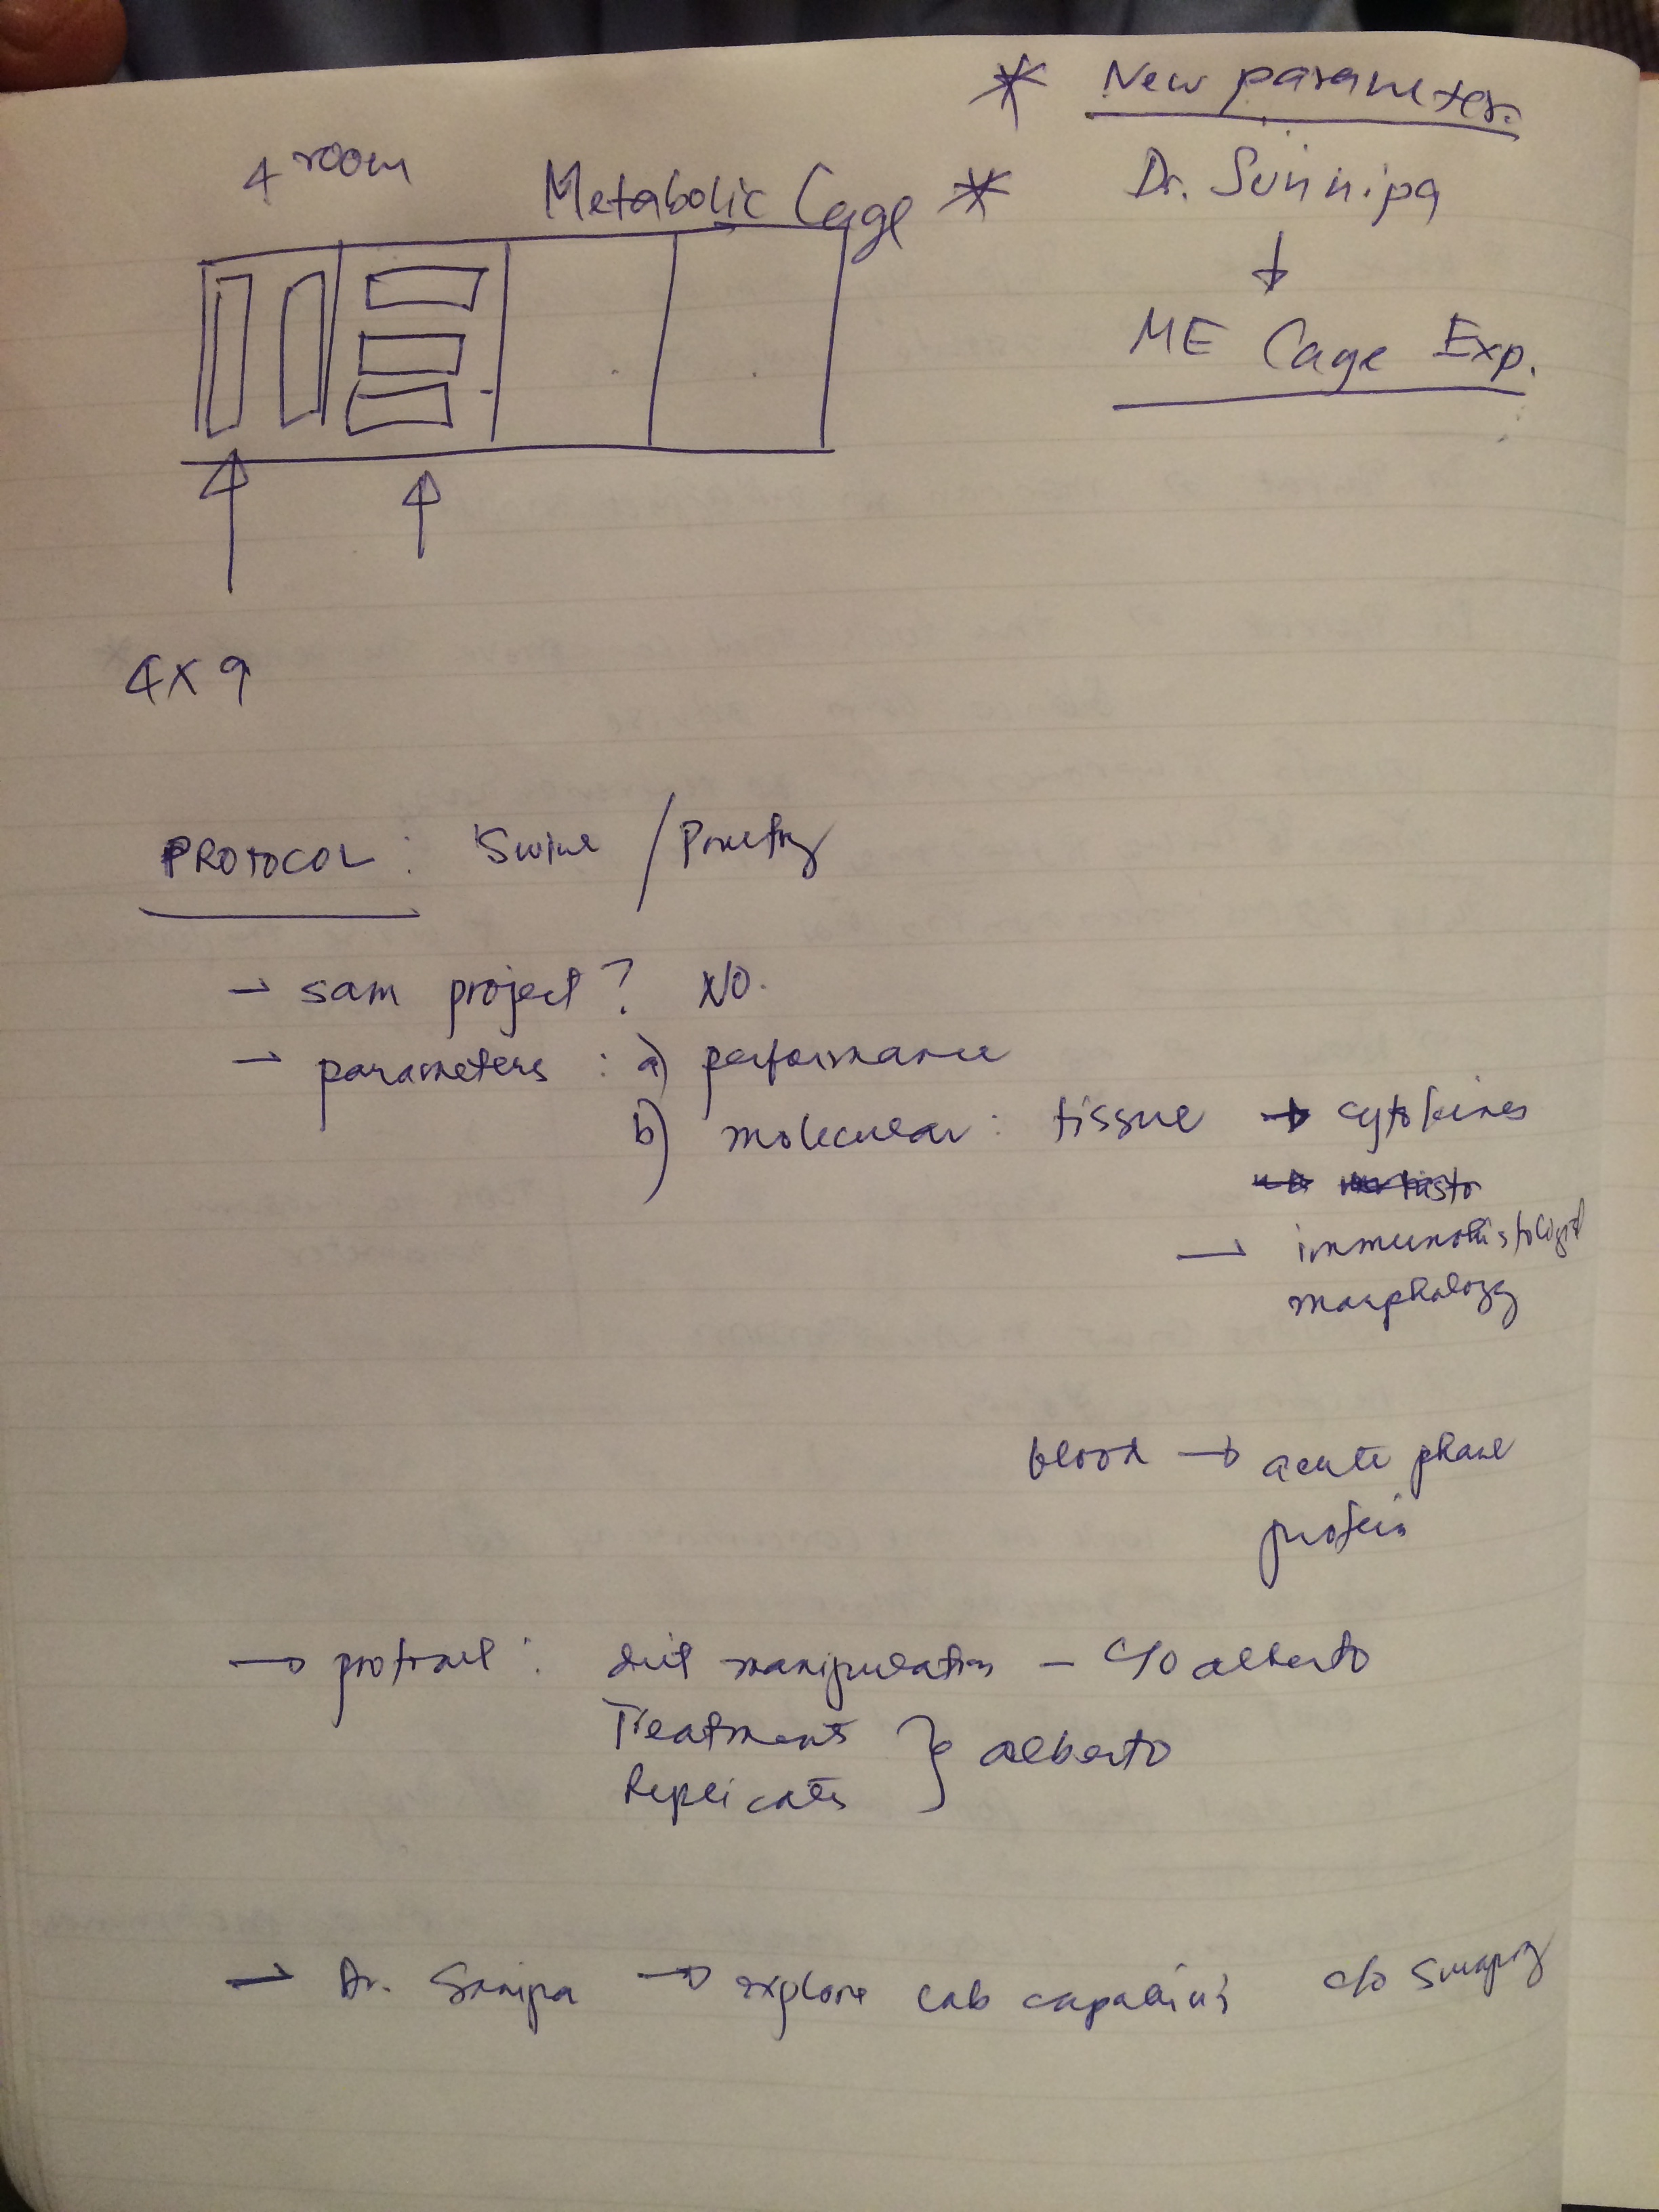 * New parameter.
4 room
Metabolic Cage *
Dr. Sunnipa
ME Cage Exp.
4x9
PROTOCOL : Swine / Poultry
- sam project ? NO.
- parameters : a) performance
b) molecular : tissue → cytokines
histo
- immunohistological
morphology
blood → acute phase
protein
→ protocol : diet manipulation - c/o alberto
Treatments
Replicates } alberto
- Dr. Sanipa → explore lab c/o